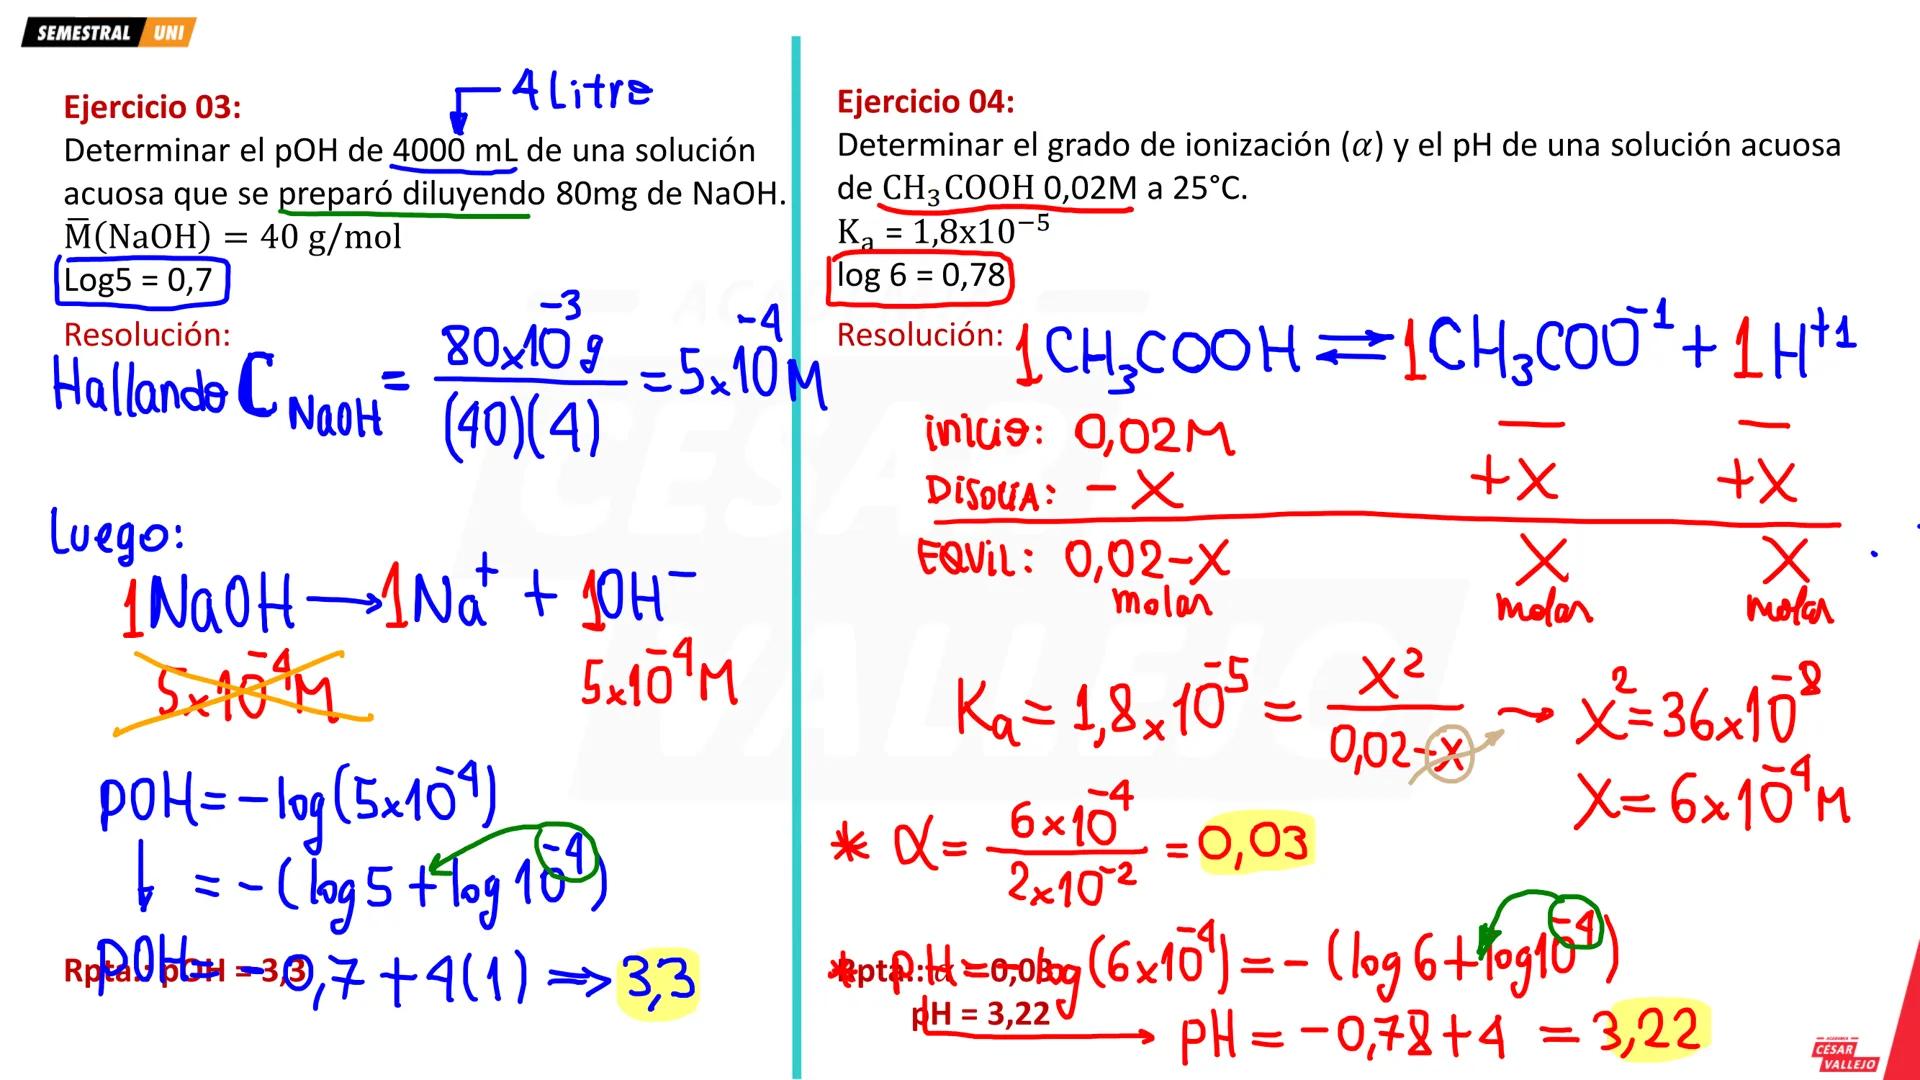 SEMESTRAL UNI
Ejercicio 03:
4 Litro
Determinar el pOH de 4000 mL de una solución
acuosa que se preparó diluyendo 80mg de NaOH.
M̅(NaOH) = 40 g/mol
Log5 = 0,7
Resolución:
Hallando C NaOH = 80x10⁻³g / (40)(4) = 5x10⁻⁴M
Luego:
1NaOH → 1Na⁺ + 1OH⁻
5x10⁻⁴M 5x10⁻⁴M
pOH = -log(5x10⁻⁴)
= -(log5 + log10⁻⁴)
pOH = -0,7 + 4(1) ⇒ 3,3
Rpta.: pOH = 3,3
Ejercicio 04:
Determinar el grado de ionización (α) y el pH de una solución acuosa
de CH₃COOH 0,02M a 25°C.
Kₐ = 1,8x10⁻⁵
log 6 = 0,78
Resolución:
1CH₃COOH ⇌ 1CH₃COO⁻¹ + 1H⁺¹
inicio: 0,02M — —
Disocia: -X +X +X
EQUIL: 0,02-X X X
molar molar molar
Ka = 1,8x10⁻⁵ = X² / 0,02-X → X² = 36x10⁻⁸
X = 6x10⁻⁴M
* α = 6x10⁻⁴ / 2x10⁻² = 0,03
* pH = -log(6x10⁻⁴) = -(log6 + log10⁻⁴)
Rpta.: α = 0,03
pH = 3,22
pH = -0,78 + 4 = 3,22
ACADEMIA
CÉSAR
VALLEJO